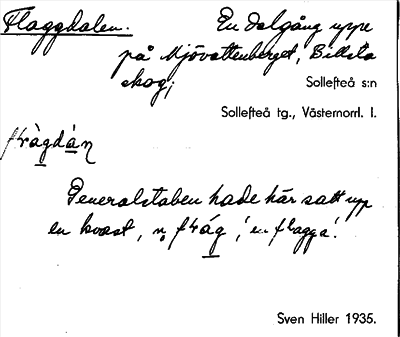 Flaggdalen.
En dalgång uppe
på Mjövattenberget, Billsta
skog;
Sollefteå s:n
Sollefteå tg., Västernorrl. l.
Generalstaben hade här satt upp
en kvast, en flagga'.
Sven Hiller 1935.